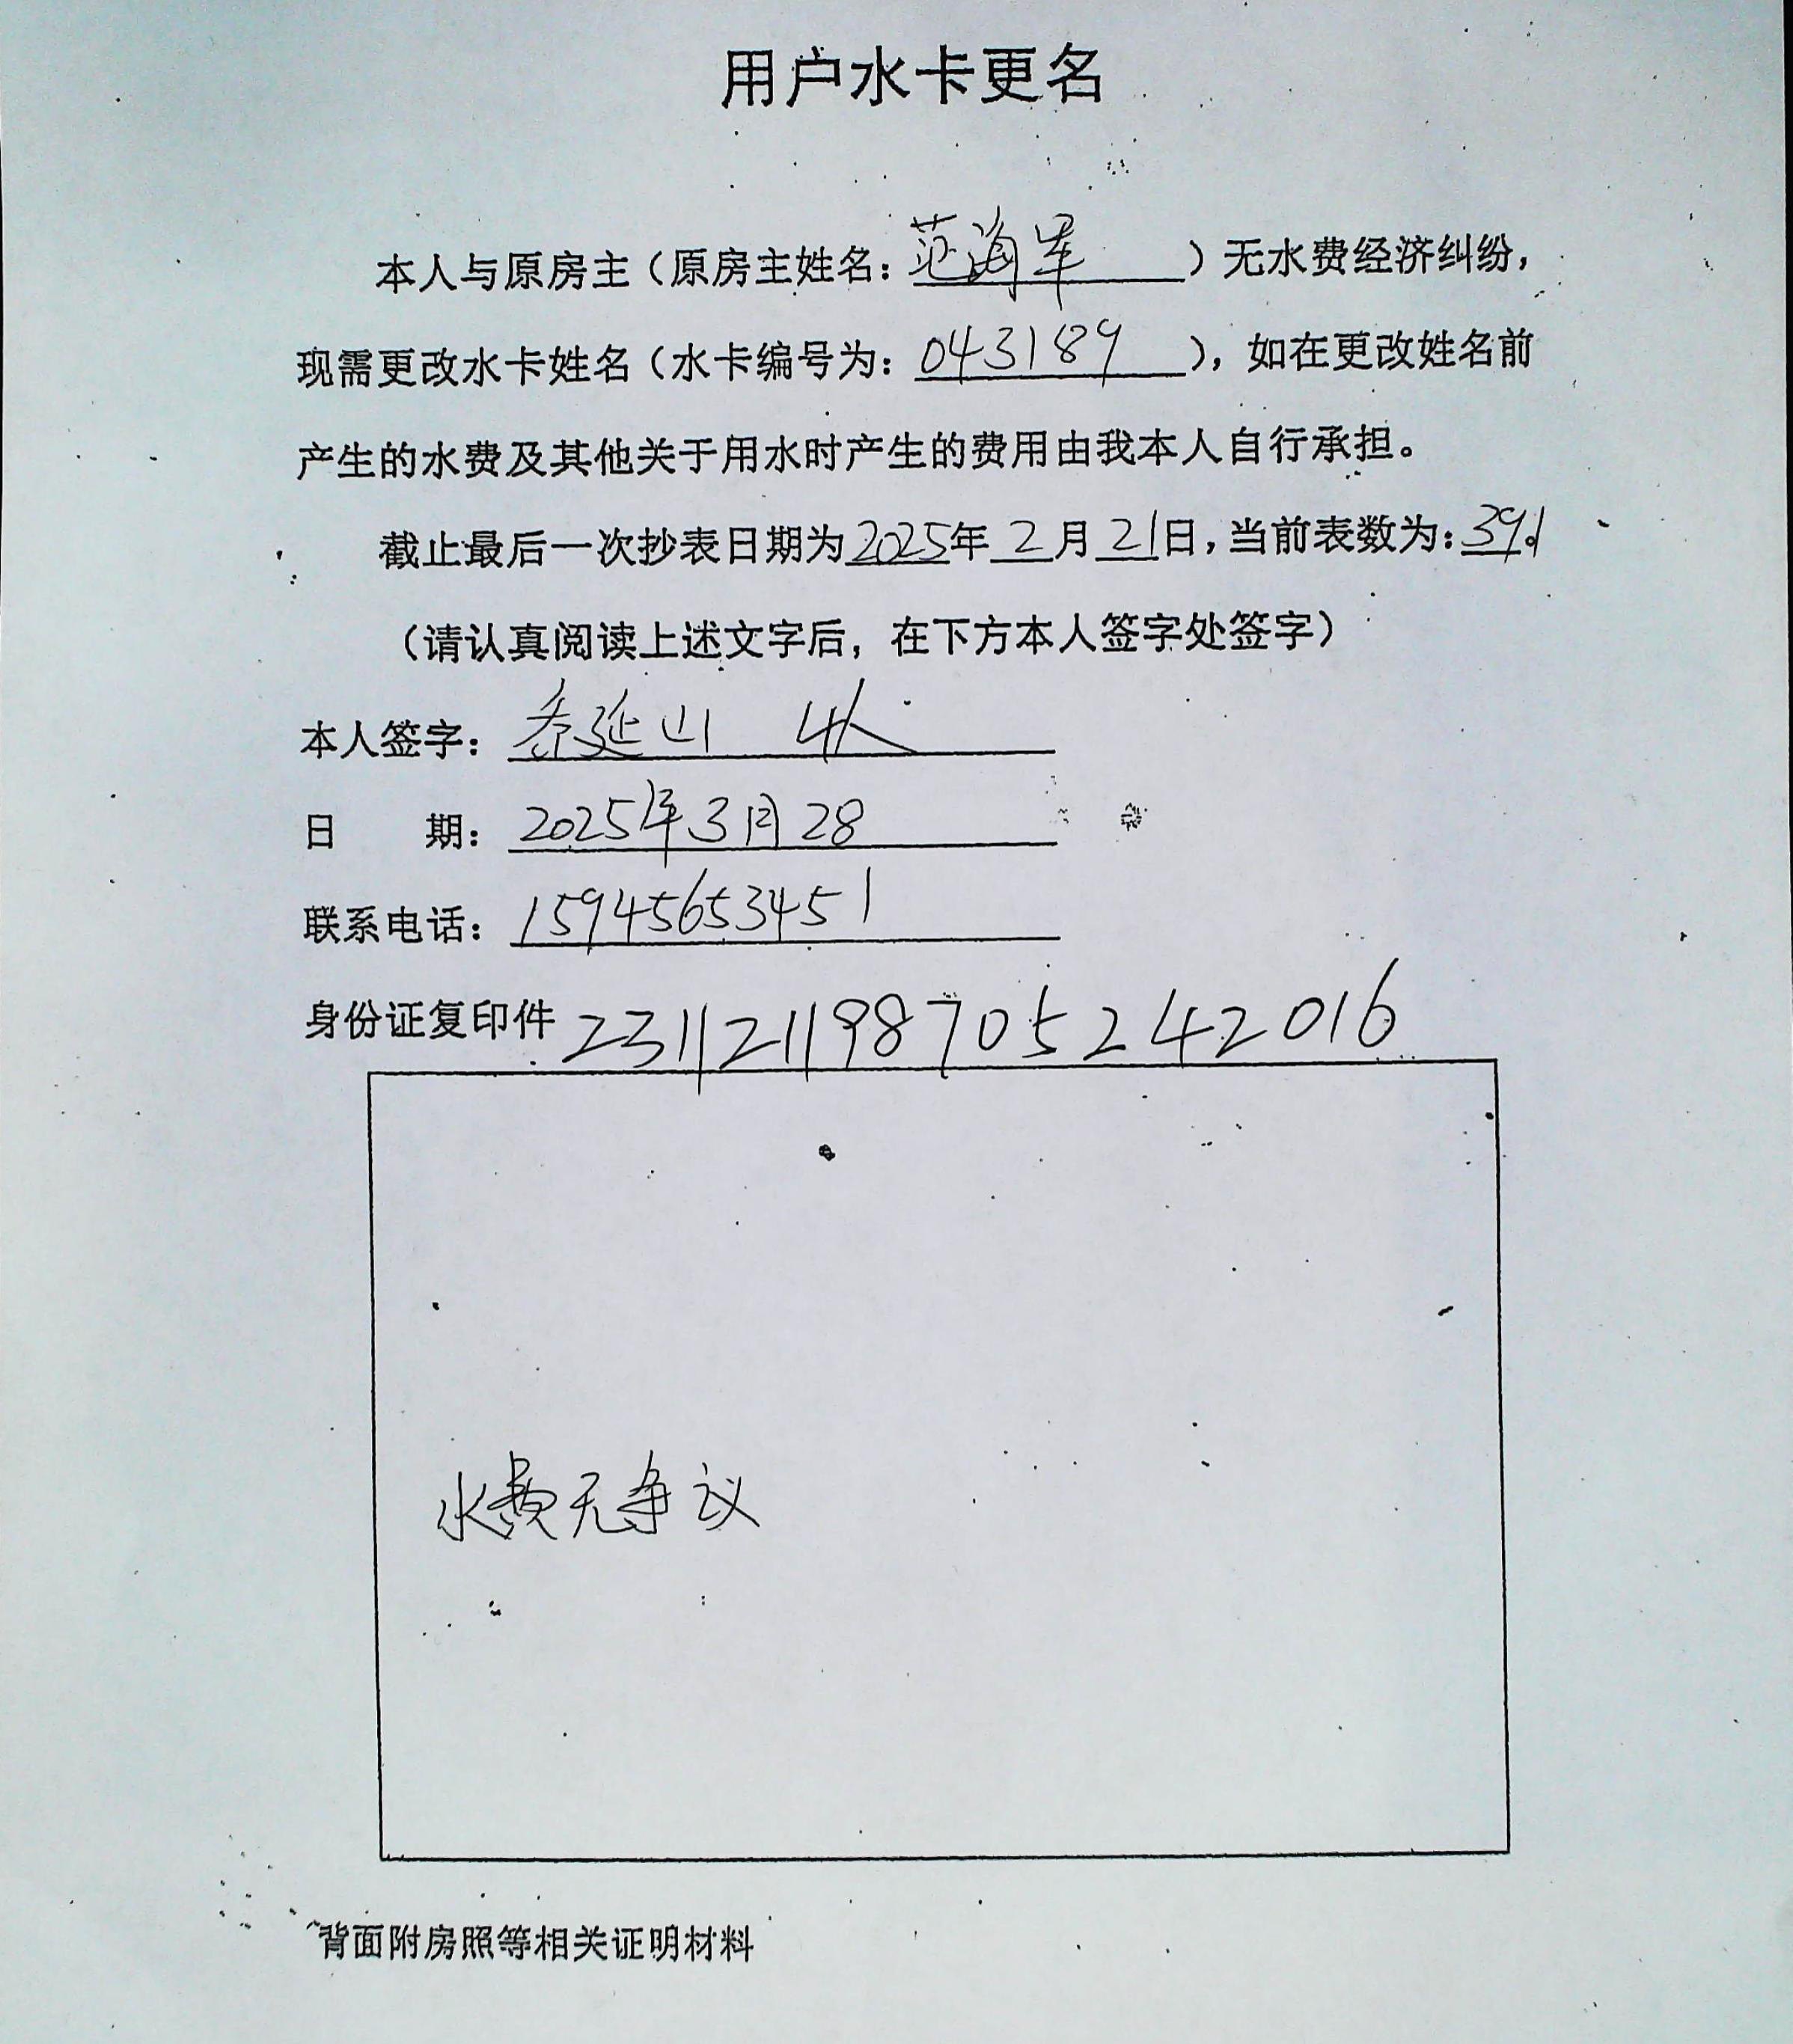 用户水卡更名
本人与原房主（原房主姓名：范海军）无水费经济纠纷，
现需更改水卡姓名（水卡编号为：043189），如在更改姓名前
产生的水费及其他关于用水时产生的费用由我本人自行承担。
截止最后一次抄表日期为2025年2月21日，当前表数为：391。
（请认真阅读上述文字后，在下方本人签字处签字）
本人签字：延山 4人
日 期：2025年3月28
联系电话：15945653451
身份证复印件 231121198705242016
水费无争议
背面附房照等相关证明材料